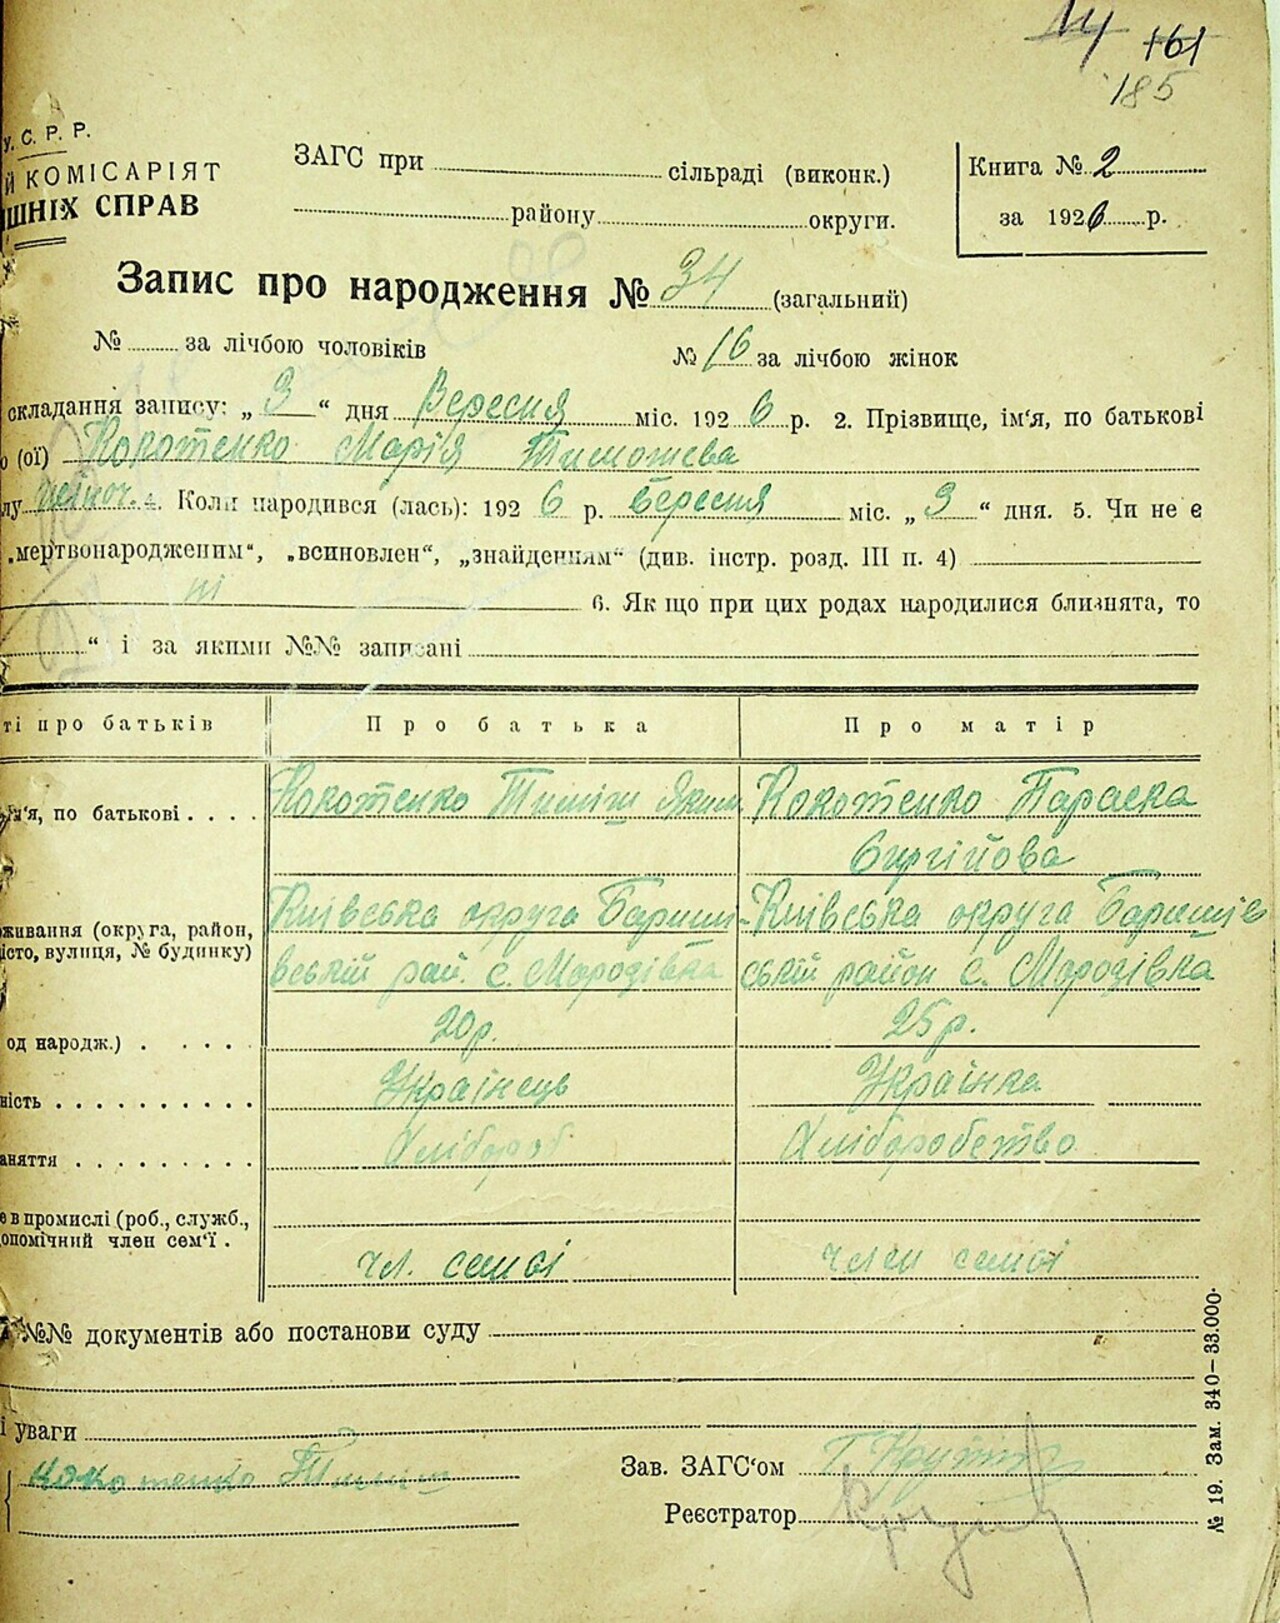 14 161
185
У. С. Р. Р.
Й КОМІСАРІЯТ
ШНІХ СПРАВ
ЗАГС при сільраді (виконк.)
району округи.
Книга № 2
за 1926 р.
Запис про народження № 34 (загальний)
№ за лічбою чоловіків № 16 за лічбою жінок
складання запису: „ 3 “ дня Вересня міс. 1926 р. 2. Прізвище, ім‘я, по батькові
о (ої) Кокотенко Марія Тимошева
лу жіноч. 4. Коли народився (лась): 1926 р. Вересня міс. „ 3 “ дня. 5. Чи не є
„мертвонародженим“, „всиновлен“, „знайденням“ (див. інстр. розд. III п. 4)
ні 6. Якщо при цих родах народилися близнята, то
“ і за якими №№ записані
ті про батьків Про батька Про матір
м‘я, по батькові . . . . Кокотенко Тиміш Яким Кокотенко Параска
Сиргійова
живання (округа, район, Київська округа Бариш- Київська округа Баришів
істо, вулиця, № будинку) вській рай. с. Мародівка ській район с. Мародівка
од народж.) . . . . . 20 р. 25 р.
ність . . . . . . . . . . Українець Українка
аняття . . . . . . . . . Хлібороб Хліборобство
е в промислі (роб., служб.,
опомічний член сем‘ї . чл. семьі член семьі
№№ документів або постанови суду
і уваги
Кокотенко Тиміш
Зав. ЗАГС‘ом
Реєстратор
№ 19. Зам. 340—33.000.